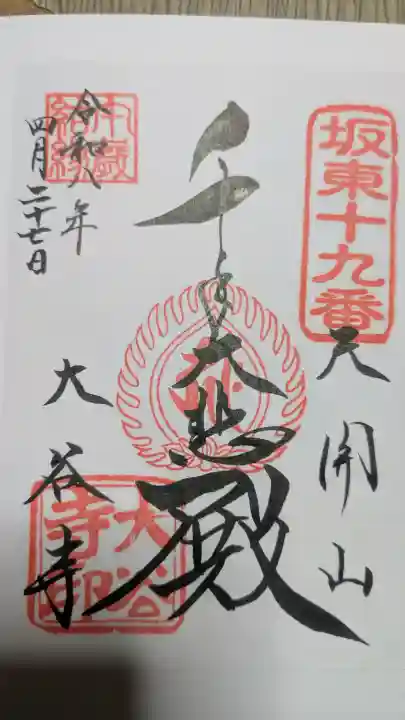 坂東十九番
天開山
千手大悲殿
大谷寺
令和八年
四月二十七日
午歳
結縁
大谷
寺印